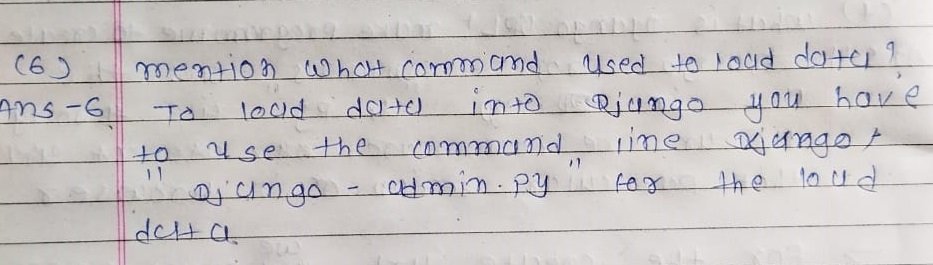 (6) mention what command used to load data?
Ans-6 To load data into Django you have
to use the command line Django,
"Django-admin.py" for the load
data.